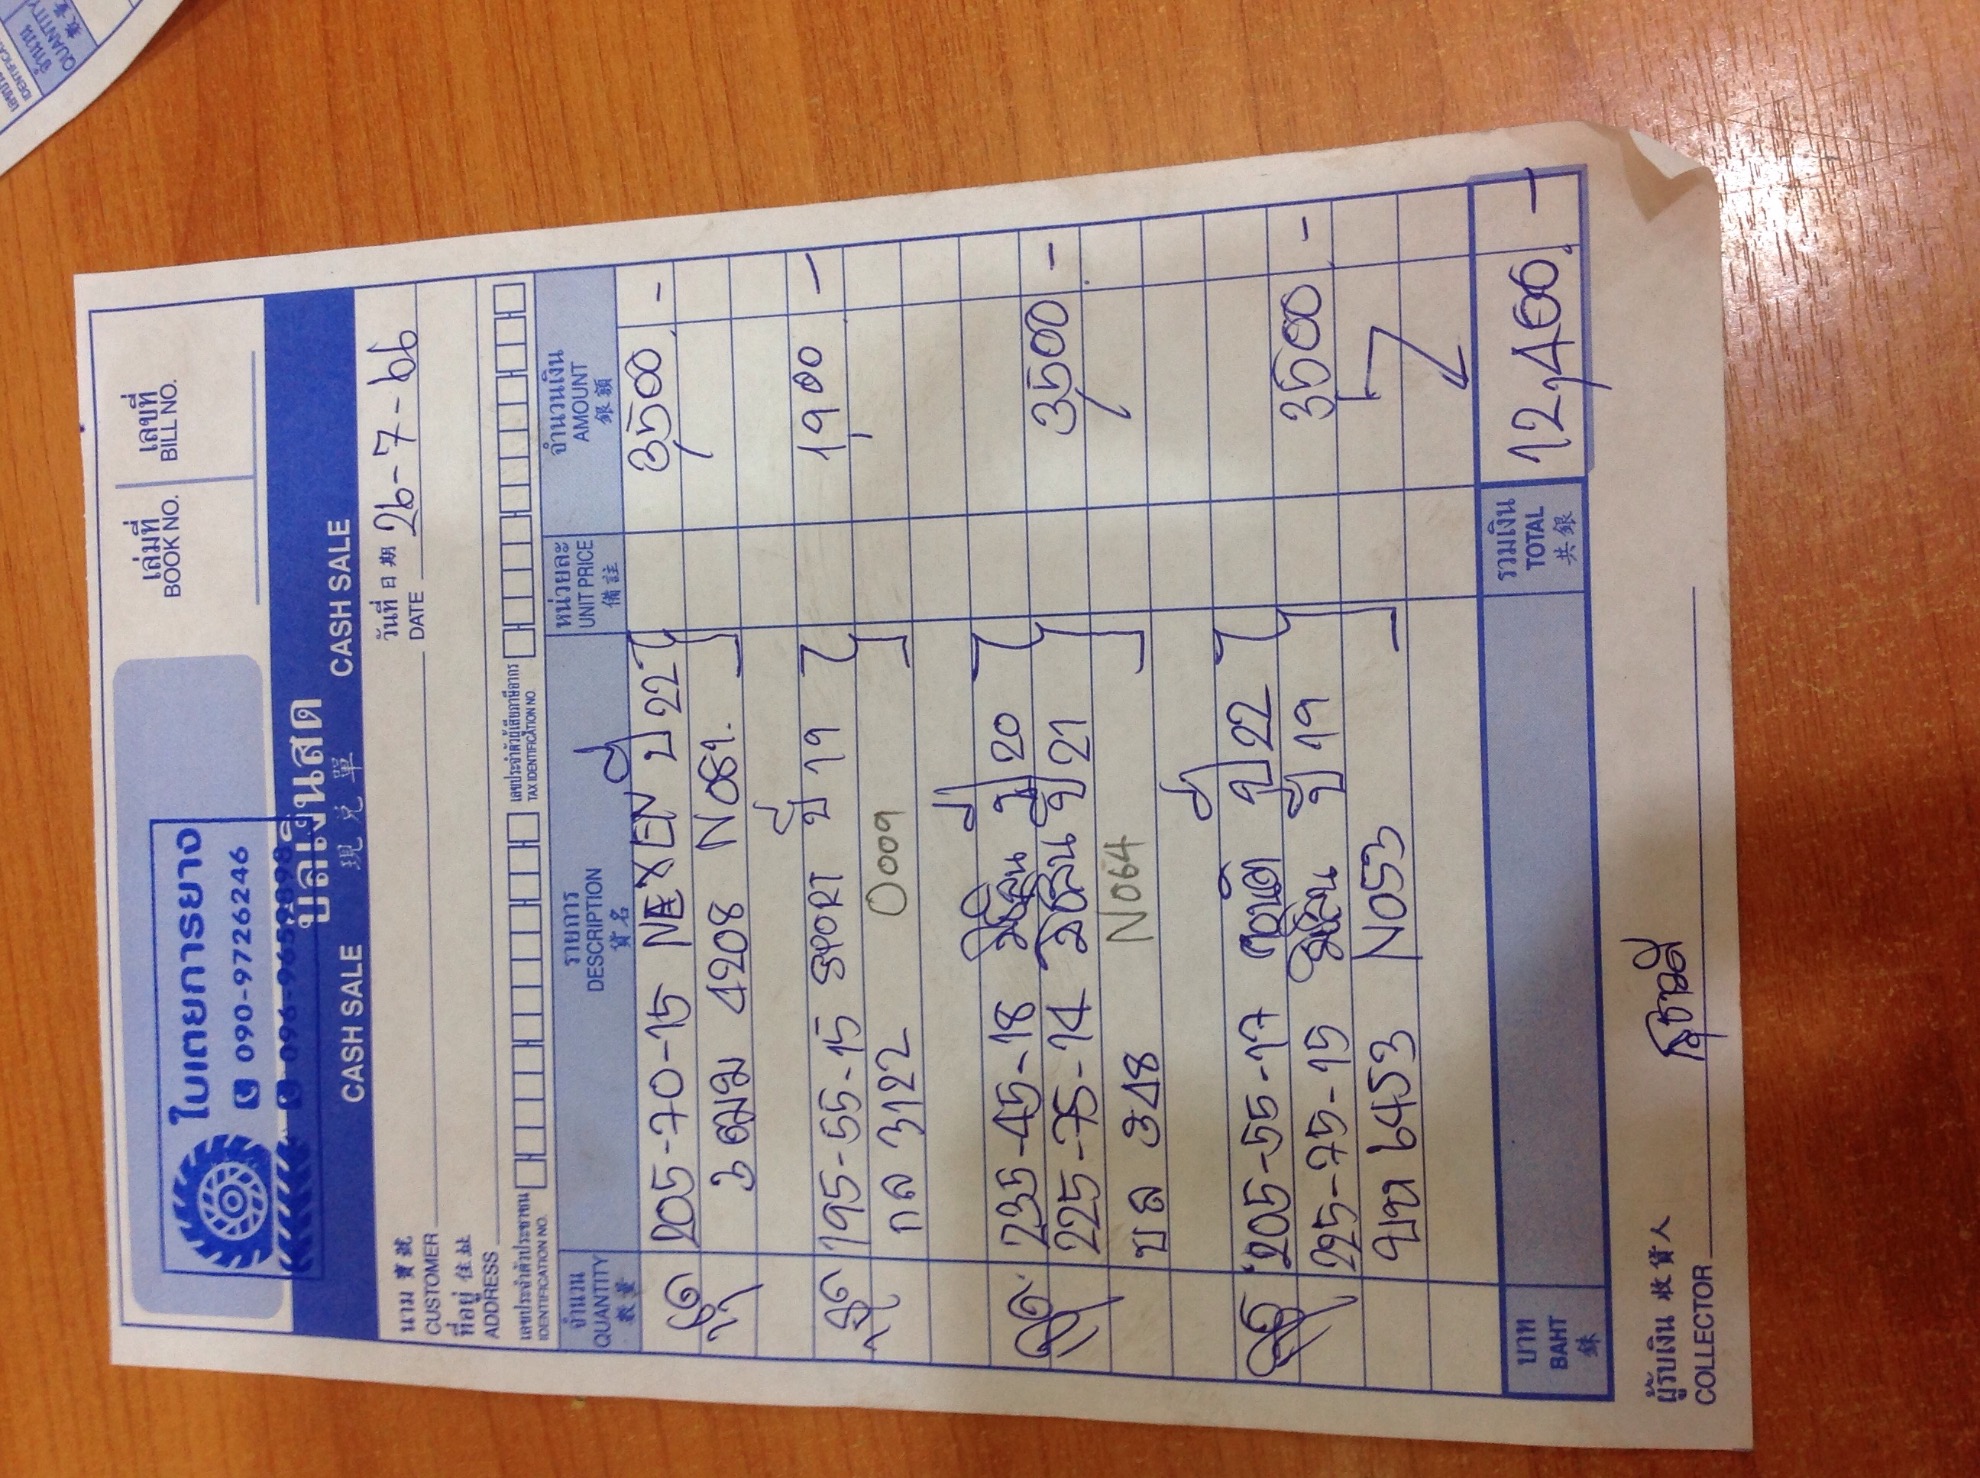 ใบเตยการยาง
090-9726246
096-9659898
เล่มที่
BOOK NO.
เลขที่
BILL NO.
บิลเงินสด
CASH SALE 現兌單 CASH SALE
นาม 寶號
CUSTOMER
วันที่ 日期
DATE 26-7-66
ที่อยู่ 住址
ADDRESS
เลขประจำตัวประชาชน
IDENTIFICATION NO.
เลขประจำตัวผู้เสียภาษีอากร
TAX IDENTIFICATION NO.
จำนวน
QUANTITY
數量
รายการ
DESCRIPTION
貨名
หน่วยละ
UNIT PRICE
備註
จำนวนเงิน
AMOUNT
銀額
205-70-15 NEXEN ปี 22 3,500.-
3ฒม 4208 N081.
195-55-15 SPORT ปี 19 1,900.-
กล 3122 O009
235-45-18 มิชลิน ปี 20 3,500.-
225-75-14 มิชลิน ปี 21
บล 348 N064
205-55-17 ปี 22 3,500.-
225-75-15 มิชลิน ปี 19
บท 6453 N053
บาท
BAHT
銖
รวมเงิน
TOTAL
共銀
12,400.-
ผู้รับเงิน 收貨人
COLLECTOR
จำนวน
QUANTITY
數量